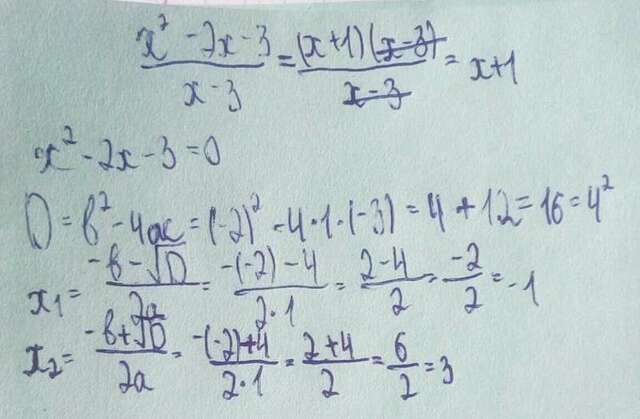 x² - 2x - 3 / x - 3 = (x+1)(x-3) / x-3 = x+1
x² - 2x - 3 = 0
D = b² - 4ac = (-2)² - 4·1·(-3) = 4 + 12 = 16 = 4²
x₁ = -b - √D / 2a = -(-2) - 4 / 2·1 = 2-4 / 2 = -2 / 2 = -1
x₂ = -b + √D / 2a = -(-2)+4 / 2·1 = 2+4 / 2 = 6 / 2 = 3